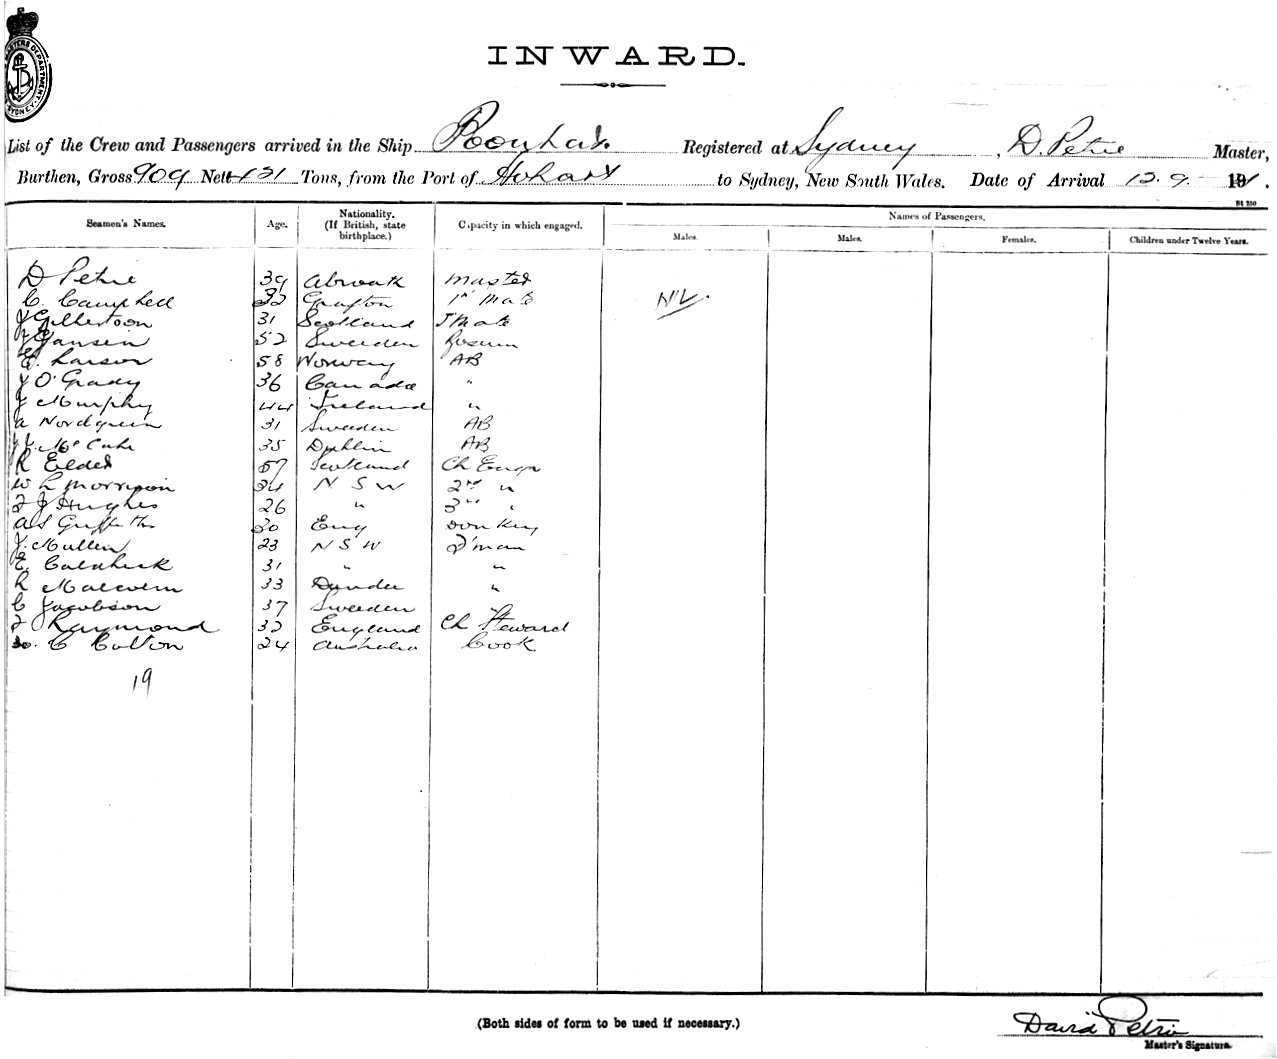 MASTERS DEPARTMENT SYDNEY
INWARD.
List of the Crew and Passengers arrived in the Ship Registered at Sydney, D. Petrie Master,
Burthen, Gross 909 Nett 431 Tons, from the Port of Hobart to Sydney, New South Wales. Date of Arrival 9.
Bt 250
Seamen's Names. Age. Nationality. (If British, state birthplace.) Capacity in which engaged. Names of Passengers.
Males. Males. Females. Children under Twelve Years.
D Petrie 39 Master
C. Campbell 32 Grafton 1st Mate NIL.
31 Scotland Mate
Jansen 52 Sweden
Larsen 58 Norway AB
J O'Grady 36 Canada "
J Murphy 44 Ireland "
A Nordgreen 31 Sweden AB
Mc Cabe 35 Dublin AB
R Elder 57 Scotland Ch Engr
W L Morrison 24 N S W 2nd "
J Hughes 26 " 3rd "
A S Griffiths 30 Eng Donkey
J. Mullen 23 N S W F'man
E 31 " "
R Malcolm 33 Dundee "
C Jacobson 37 Sweden "
Raymond 32 England Ch Steward
C Colton 24 Australia Cook
19
(Both sides of form to be used if necessary.)
David Petrie
Master's Signature.